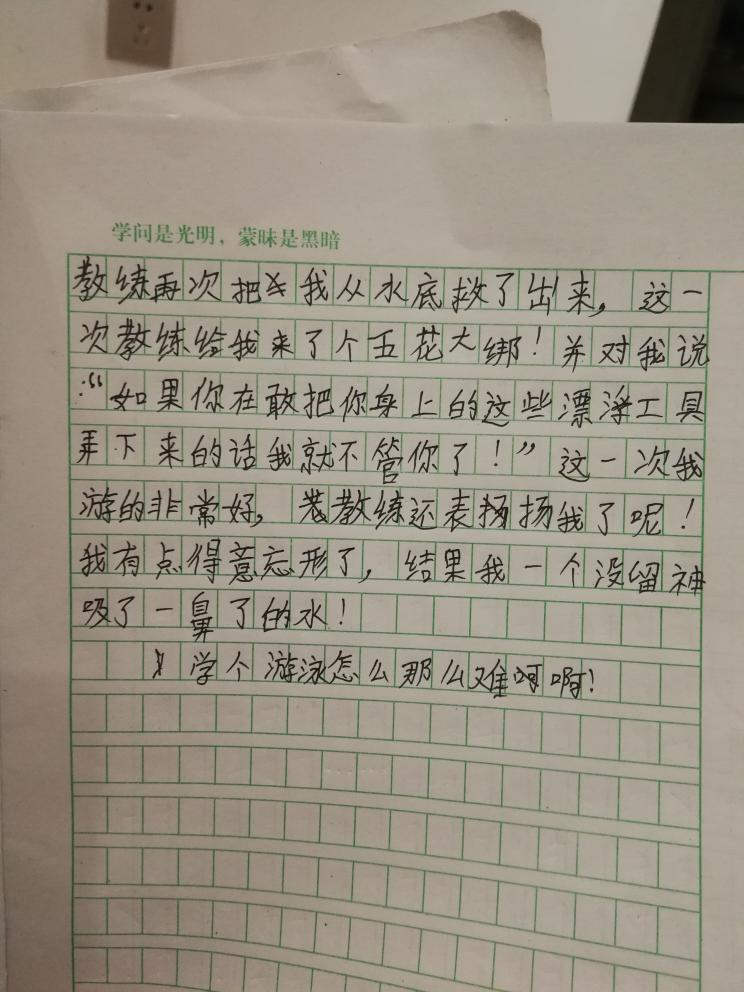 学问是光明，蒙昧是黑暗
教练再次把我从水底救了出来，这一
次教练给我来了个五花大绑！并对我说
：“如果你在敢把你身上的这些漂浮工具
弄下来的话我就不管你了！”这一次我
游的非常好，教练还表扬扬我了呢！
我有点得意忘形了，结果我一个没留神
吸了一鼻了的水！
学个游泳怎么那么难呵啊！